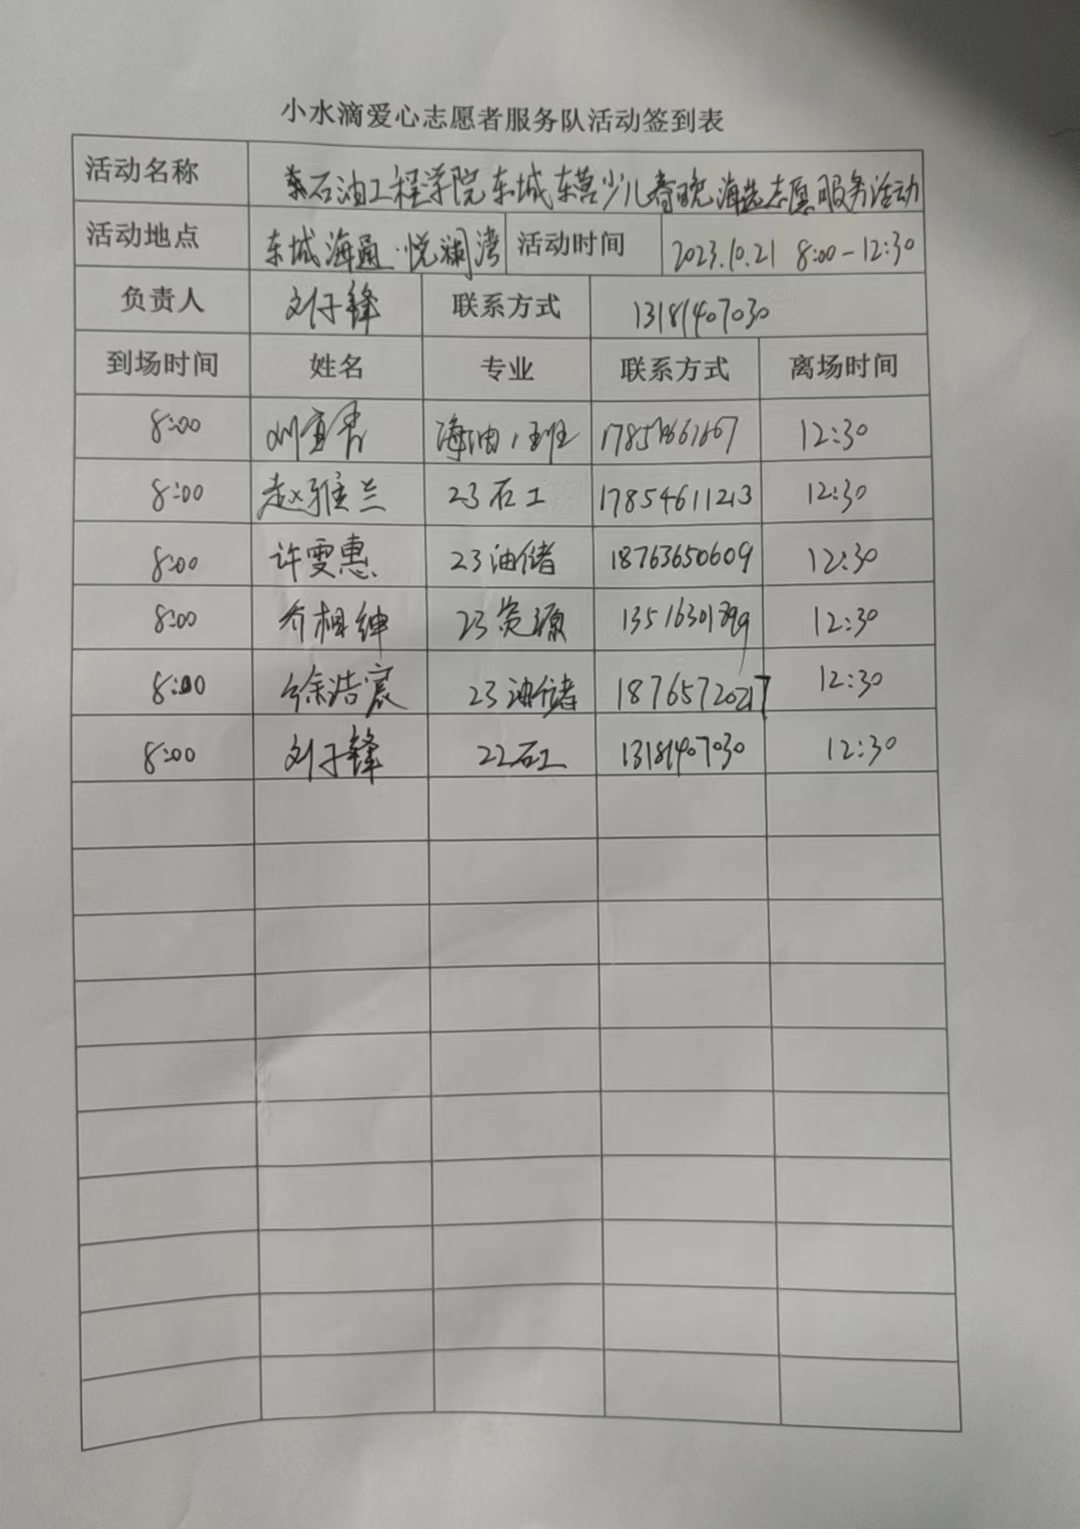 小水滴爱心志愿者服务队活动签到表
活动名称 石油工程学院东城东营少儿春晚海选志愿服务活动
活动地点 东城海通·悦澜湾 活动时间 2023.10.21 8:00-12:30
负责人 刘子锋 联系方式 13181407030
到场时间 姓名 专业 联系方式 离场时间
8:00 海油1班 12:30
8:00 赵雅兰 23石工 17854611213 12:30
8:00 许雯惠 23油储 18763650609 12:30
8:00 乔相绅 23资源 12:30
8:00 徐浩宸 23油储 18765720217 12:30
8:00 刘子锋 22石工 13181407030 12:30